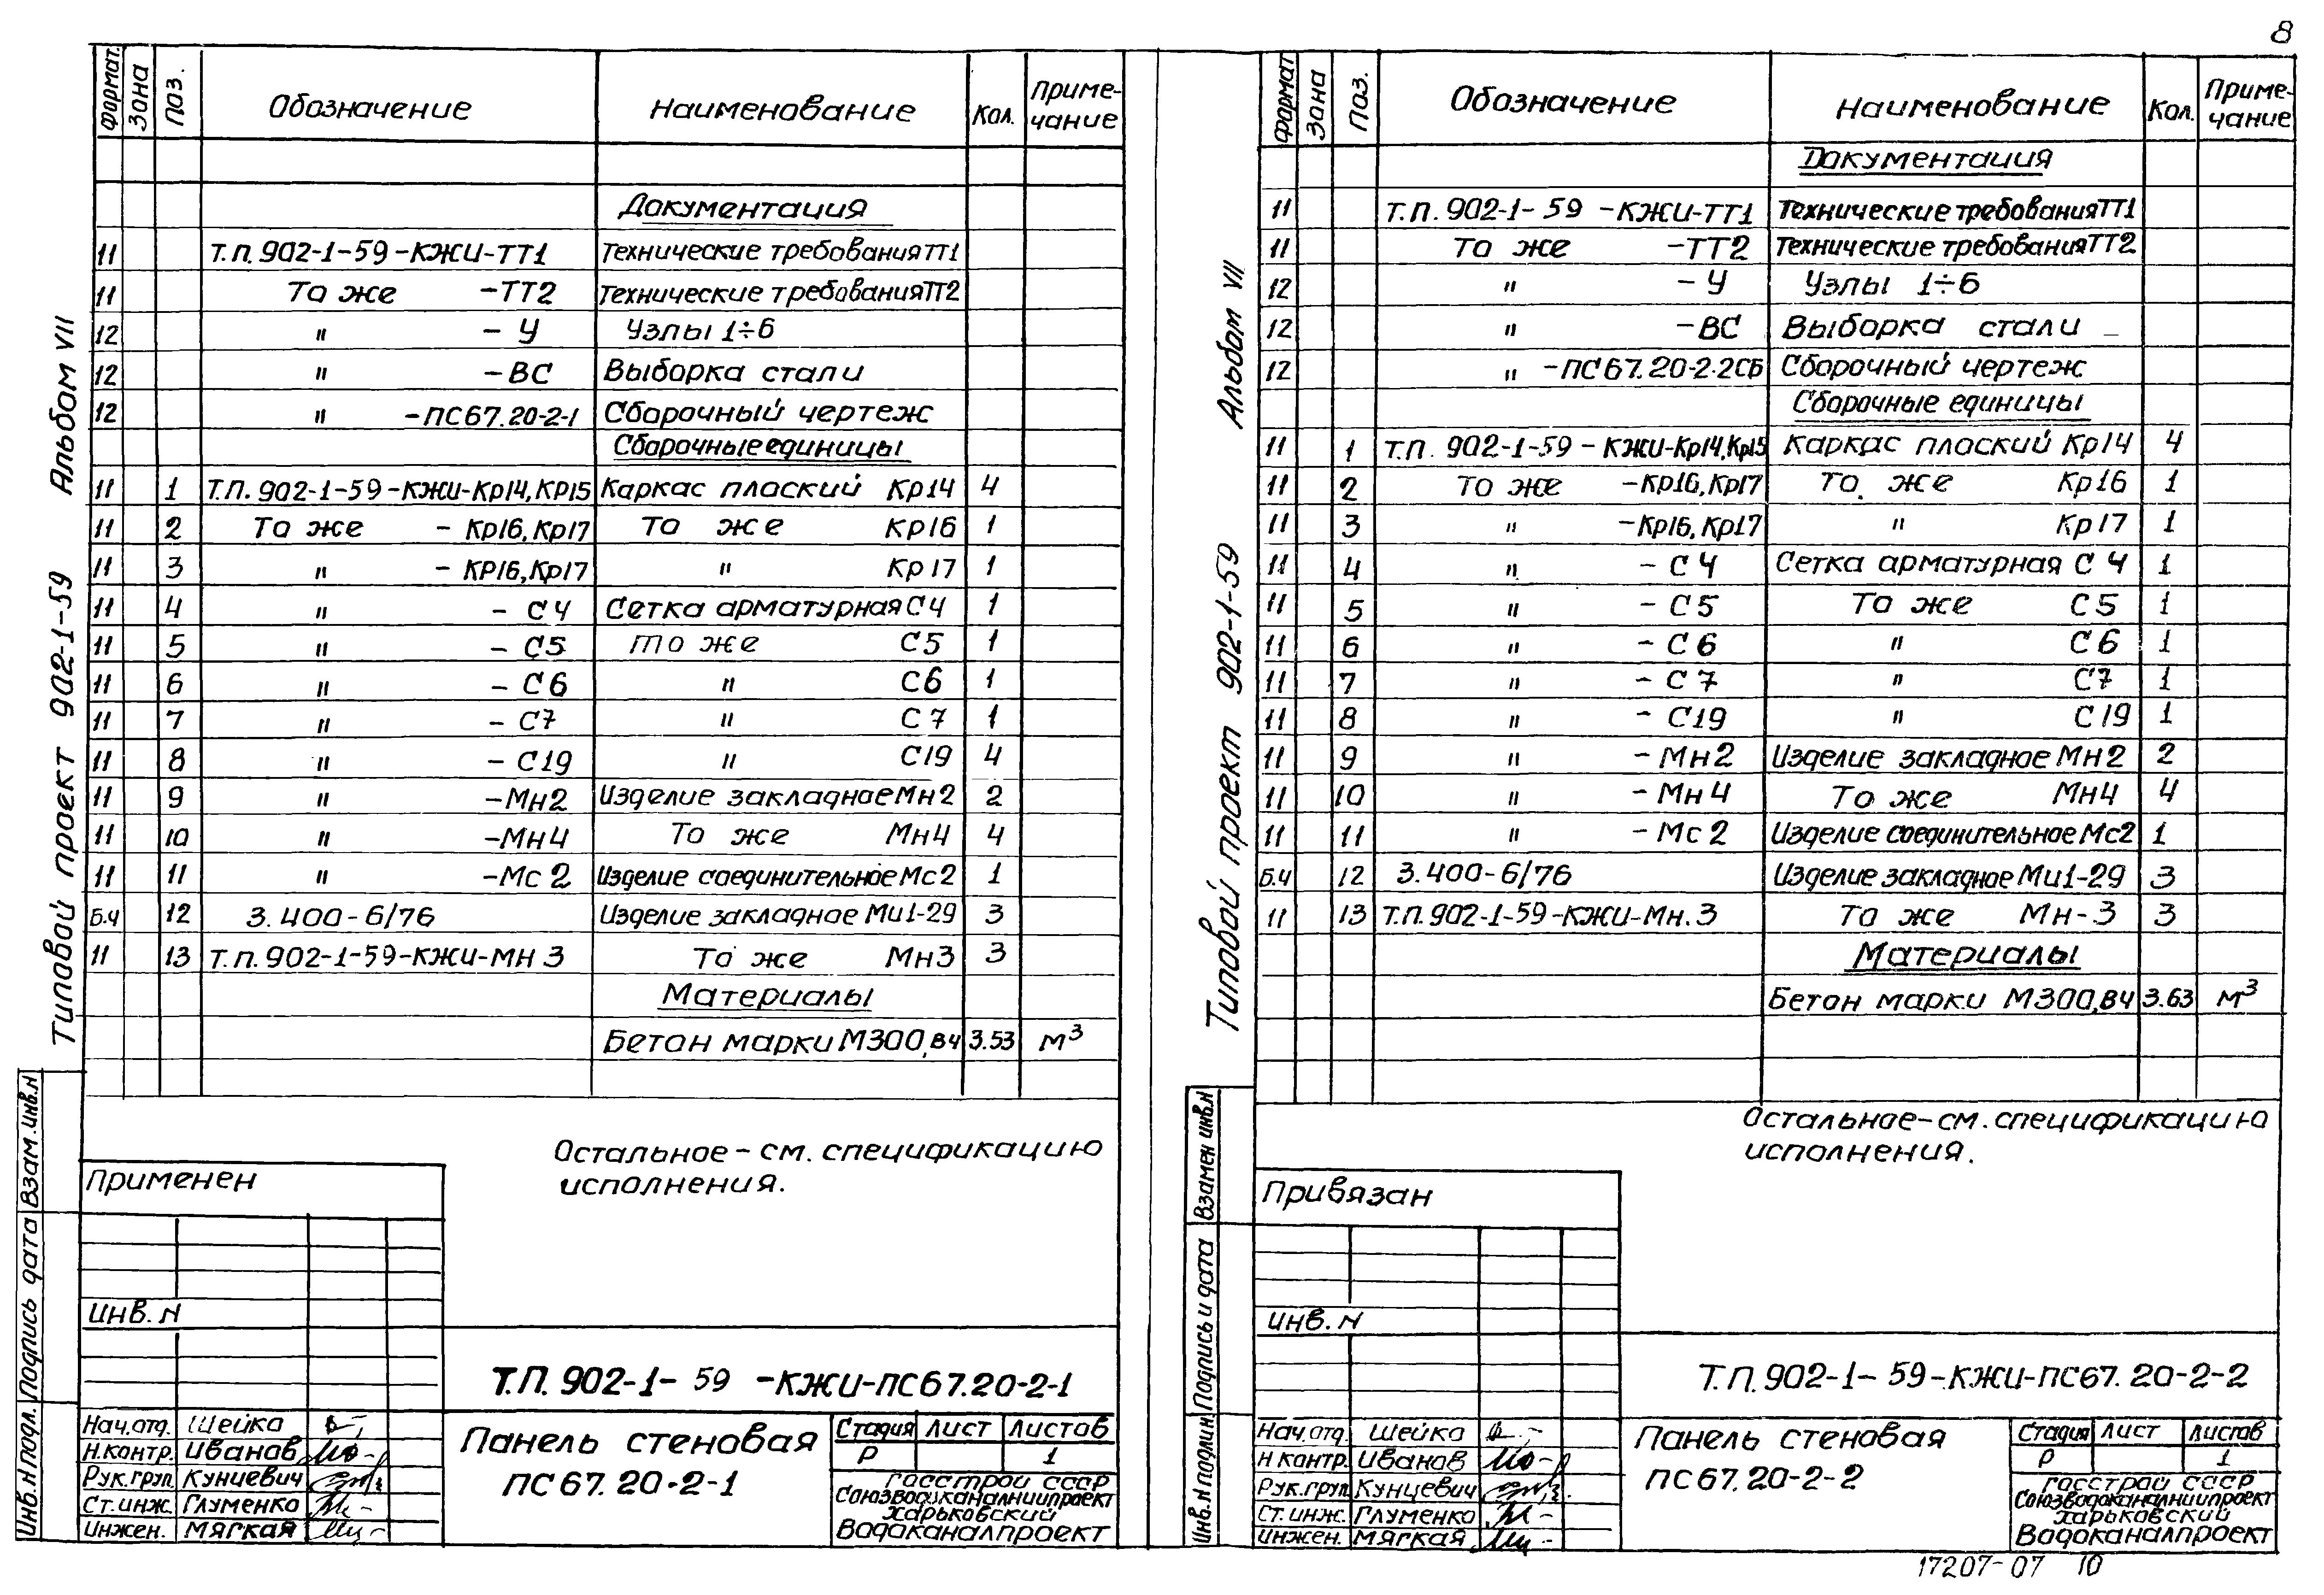 8
Типовой проект 902-1-59 Альбом VII
Формат. Зона Поз. Обозначение Наименование Кол. Приме-
чание
Документация
11 Т.П.902-1-59-КЖИ-ТТ1 Технические требования ТТ1
11 То же -ТТ2 Технические требования ТТ2
12 " - У Узлы 1÷6
12 " -ВС Выборка стали
12 " -ПС67.20-2-1 Сборочный чертеж
Сборочные единицы
11 1 Т.П.902-1-59-КЖИ-Кр14,КР15 Каркас плоский Кр14 4
11 2 То же - Кр16,Кр17 То же Кр16 1
11 3 " - КР16,Кр17 " Кр17 1
11 4 " - С4 Сетка арматурная С4 1
11 5 " - С5 то же С5 1
11 6 " - С6 " С6 1
11 7 " - С7 " С7 1
11 8 " - С19 " С19 4
11 9 " -Мн2 Изделие закладное Мн2 2
11 10 " -Мн4 То же Мн4 4
11 11 " -Мс2 Изделие соединительное Мс2 1
Б.ч 12 3.400-6/76 Изделие закладное Ми1-29 3
11 13 Т.П.902-1-59-КЖИ-МН3 То же Мн3 3
Материалы
Бетон марки М300,В4 3.53 м³
Остальное - см. спецификацию
исполнения.
Применен
Инв. N
Инв.N подл. Подпись дата Взам.инв.N
Т.П.902-1-59-КЖИ-ПС67.20-2-1
Нач.отд. Шейко
Н.контр. Иванов
Рук.груп. Кунцевич
Ст.инж. Глуменко
Инжен. Мягкая
Панель стеновая
ПС67.20-2-1
Стадия Лист Листов
Р 1
Госстрой СССР
Союзводоканалниипроект
Харьковский
Водоканалпроект
Типовой проект 902-1-59 Альбом VII
Формат Зона Поз. Обозначение Наименование Кол. Приме-
чание
Документация
11 Т.П.902-1-59-КЖИ-ТТ1 Технические требования ТТ1
11 То же -ТТ2 Технические требования ТТ2
12 " - У Узлы 1÷6
12 " -ВС Выборка стали
12 " -ПС67.20-2-2СБ Сборочный чертеж
Сборочные единицы
11 1 Т.П.902-1-59-КЖИ-Кр14,Кр15 Каркас плоский Кр14 4
11 2 То же -Кр16,Кр17 То же Кр16 1
11 3 " -Кр16,Кр17 " Кр17 1
11 4 " - С4 Сетка арматурная С4 1
11 5 " - С5 То же С5 1
11 6 " - С6 " С6 1
11 7 " - С7 " С7 1
11 8 " - С19 " С19 1
11 9 " -Мн2 Изделие закладное Мн2 2
11 10 " -Мн4 То же Мн4 4
11 11 " -Мс2 Изделие соединительное Мс2 1
Б.ч 12 3.400-6/76 Изделие закладное Ми1-29 3
11 13 Т.П.902-1-59-КЖИ-Мн.3 То же Мн-3 3
Материалы
Бетон марки М300,В4 3.63 м³
Остальное-см. спецификацию
исполнения.
Привязан
Инв. N
Инв.N подлин Подпись и дата Взамен инв.N
Т.П.902-1-59-КЖИ-ПС67.20-2-2
Нач.отд. Шейко
Н контр. Иванов
Рук.груп. Кунцевич
Ст.инж. Глуменко
инжен. Мягкая
Панель стеновая
ПС67.20-2-2
Стадия Лист Листов
Р 1
Госстрой СССР
Союзводоканалниипроект
Харьковский
Водоканалпроект
17207-07 10